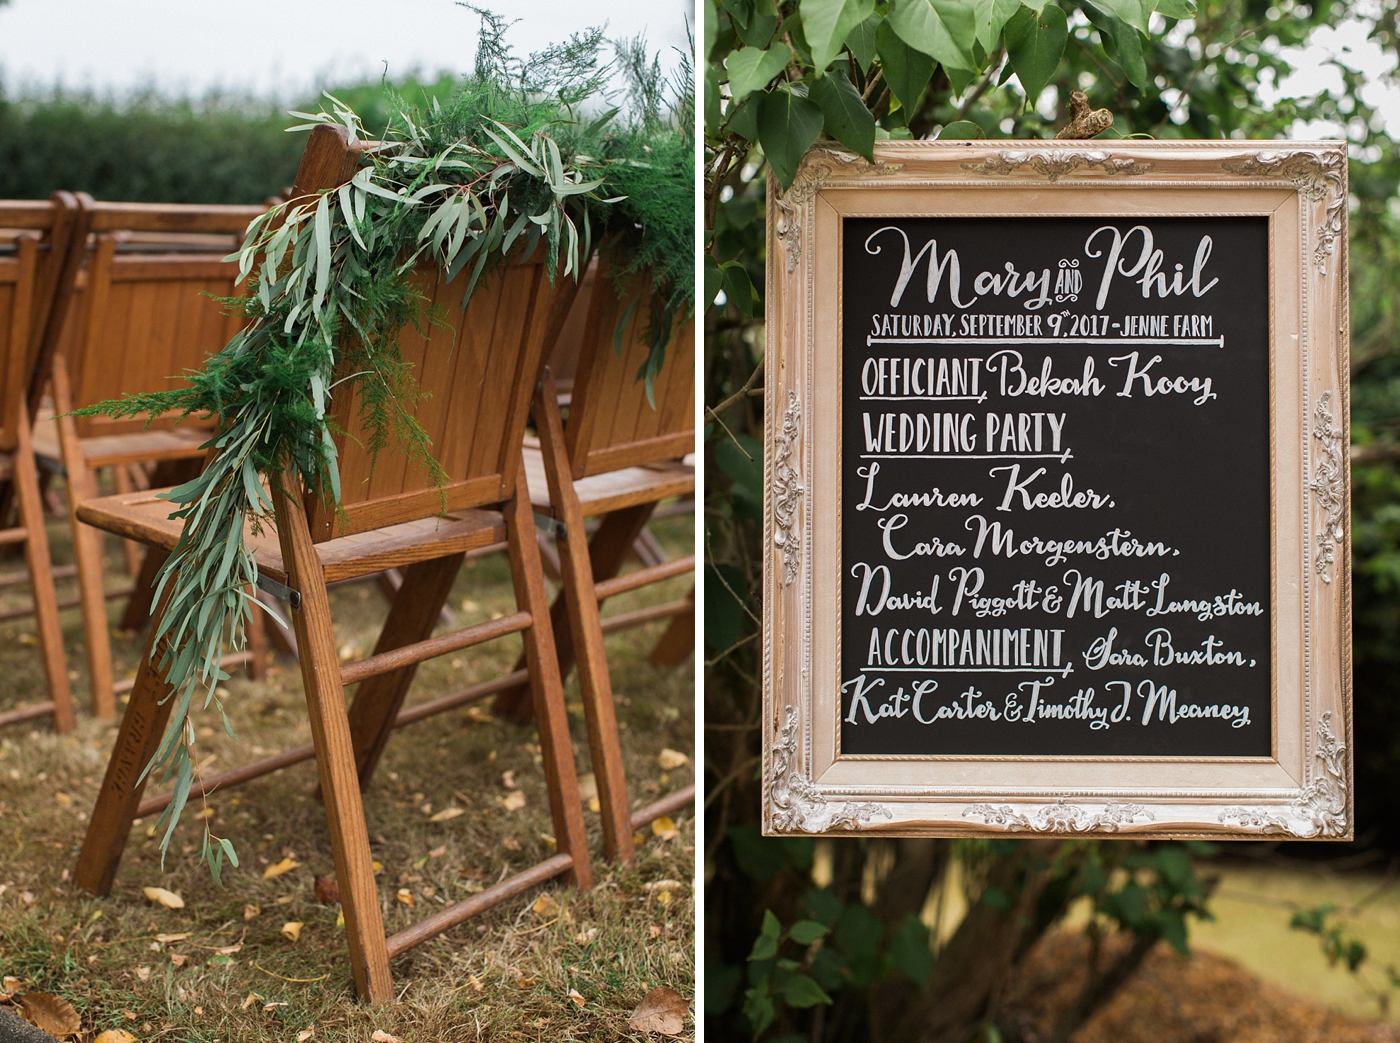 Mary AND Phil
SATURDAY, SEPTEMBER 9TH, 2017 - JENNE FARM
OFFICIANT, Bekah Kooy
WEDDING PARTY,
Lauren Keeler,
Cara Morgenstern,
David Piggott & Matt Langston
ACCOMPANIMENT, Sara Buxton,
Kat Carter & Timothy J. Meaney